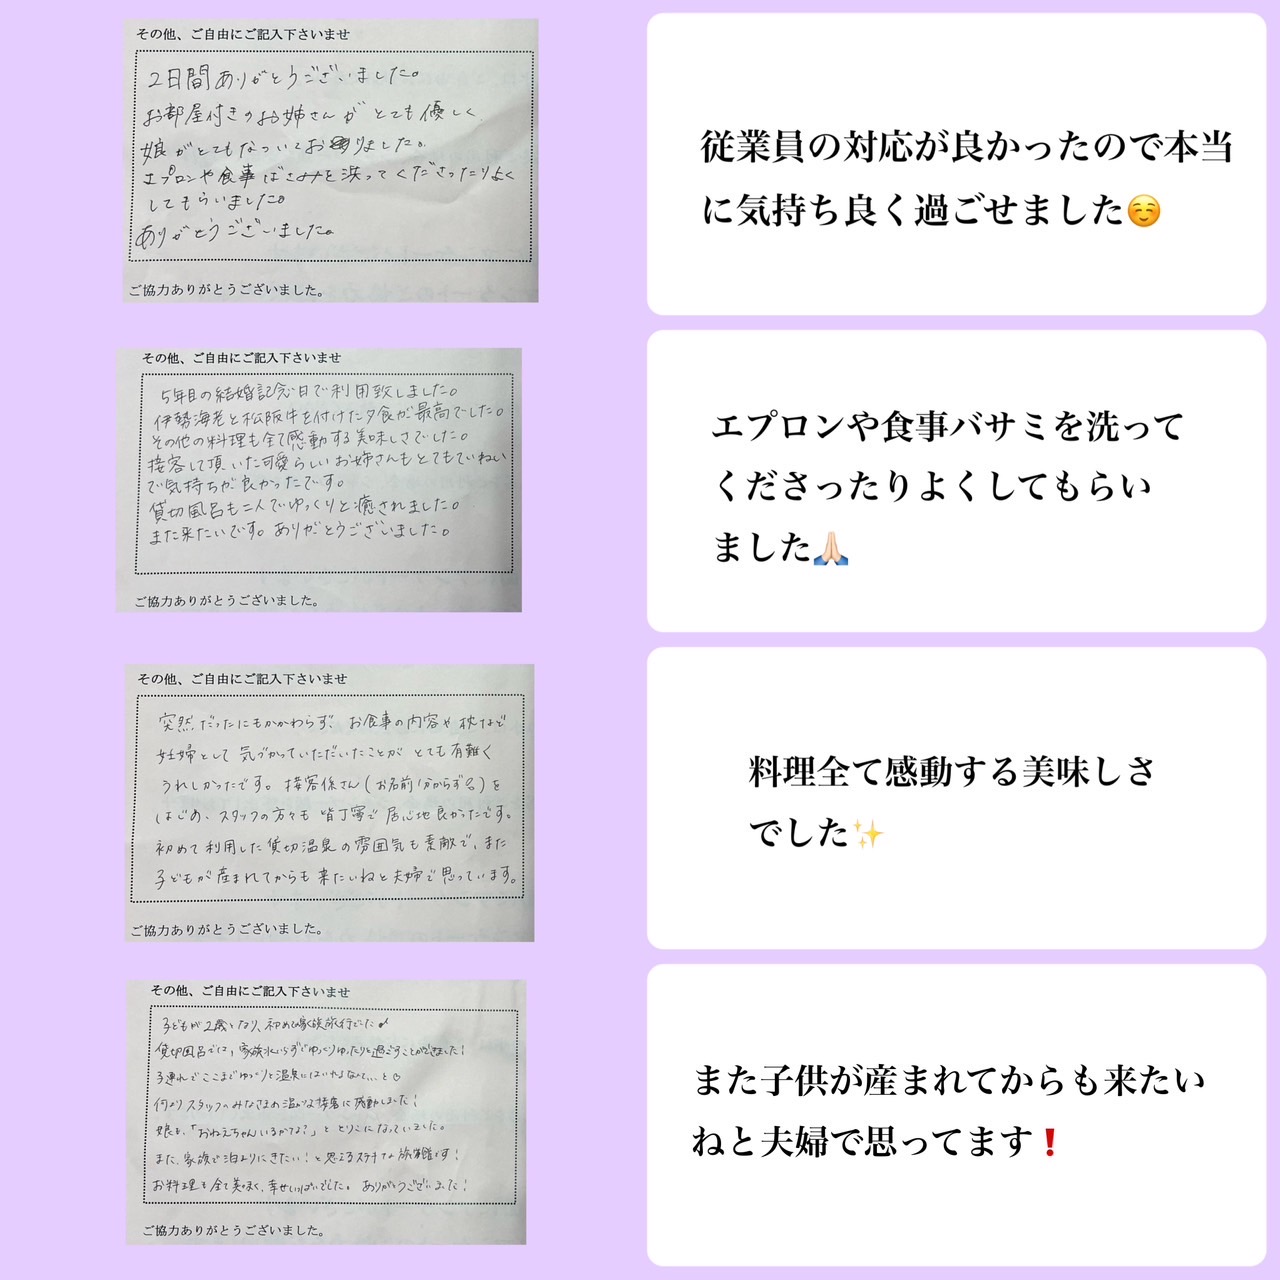 その他、ご自由にご記入下さいませ
2日間ありがとうございました。
お部屋付きのお姉さんがとても優しく
娘がとてもなついておりました。
エプロンや食事ばさみを洗ってくださったりよく
してもらいました。
ありがとうございました。
ご協力ありがとうございました。
従業員の対応が良かったので本当
に気持ち良く過ごせました☺️
その他、ご自由にご記入下さいませ
5年目の結婚記念日で利用致しました。
伊勢海老と松阪牛を付けた夕食が最高でした。
その他の料理も全て感動する美味しさでした。
接客して頂いた可愛らしいお姉さんもとてもていねい
で気持ちが良かったです。
貸切風呂も二人でゆっくりと癒されました。
また来たいです。ありがとうございました。
ご協力ありがとうございました。
エプロンや食事バサミを洗って
くださったりよくしてもらい
ました🙏🏻
その他、ご自由にご記入下さいませ
突然だったにもかかわらず、お食事の内容や枕など
妊婦として気づかっていただいたことがとても有難く
うれしかったです。接客係さん(お名前分からず💦)を
はじめ、スタッフの方々も皆丁寧で居心地良かったです。
初めて利用した貸切温泉の雰囲気も素敵で、また
子どもが産まれてからも来たいねと夫婦で思っています。
ご協力ありがとうございました。
料理全て感動する美味しさ
でした✨
その他、ご自由にご記入下さいませ
子どもが2歳となり、初めて家族旅行でした♪
貸切風呂では、家族水いらずでゆっくりゆったりと過ごすことができました!
子連れでここまでゆっくりと温泉にはいれるなんて…と♡
何よりスタッフのみなさまの温かな接客に感動しました!
娘も、「おねえちゃんいるかな?」ととりこになっていました。
また、家族で泊まりにきたい!と思えるステキな旅館です!
お料理も全て美味しく、幸せいっぱいでした。ありがとうございました!
ご協力ありがとうございました。
また子供が産まれてからも来たい
ねと夫婦で思ってます❗